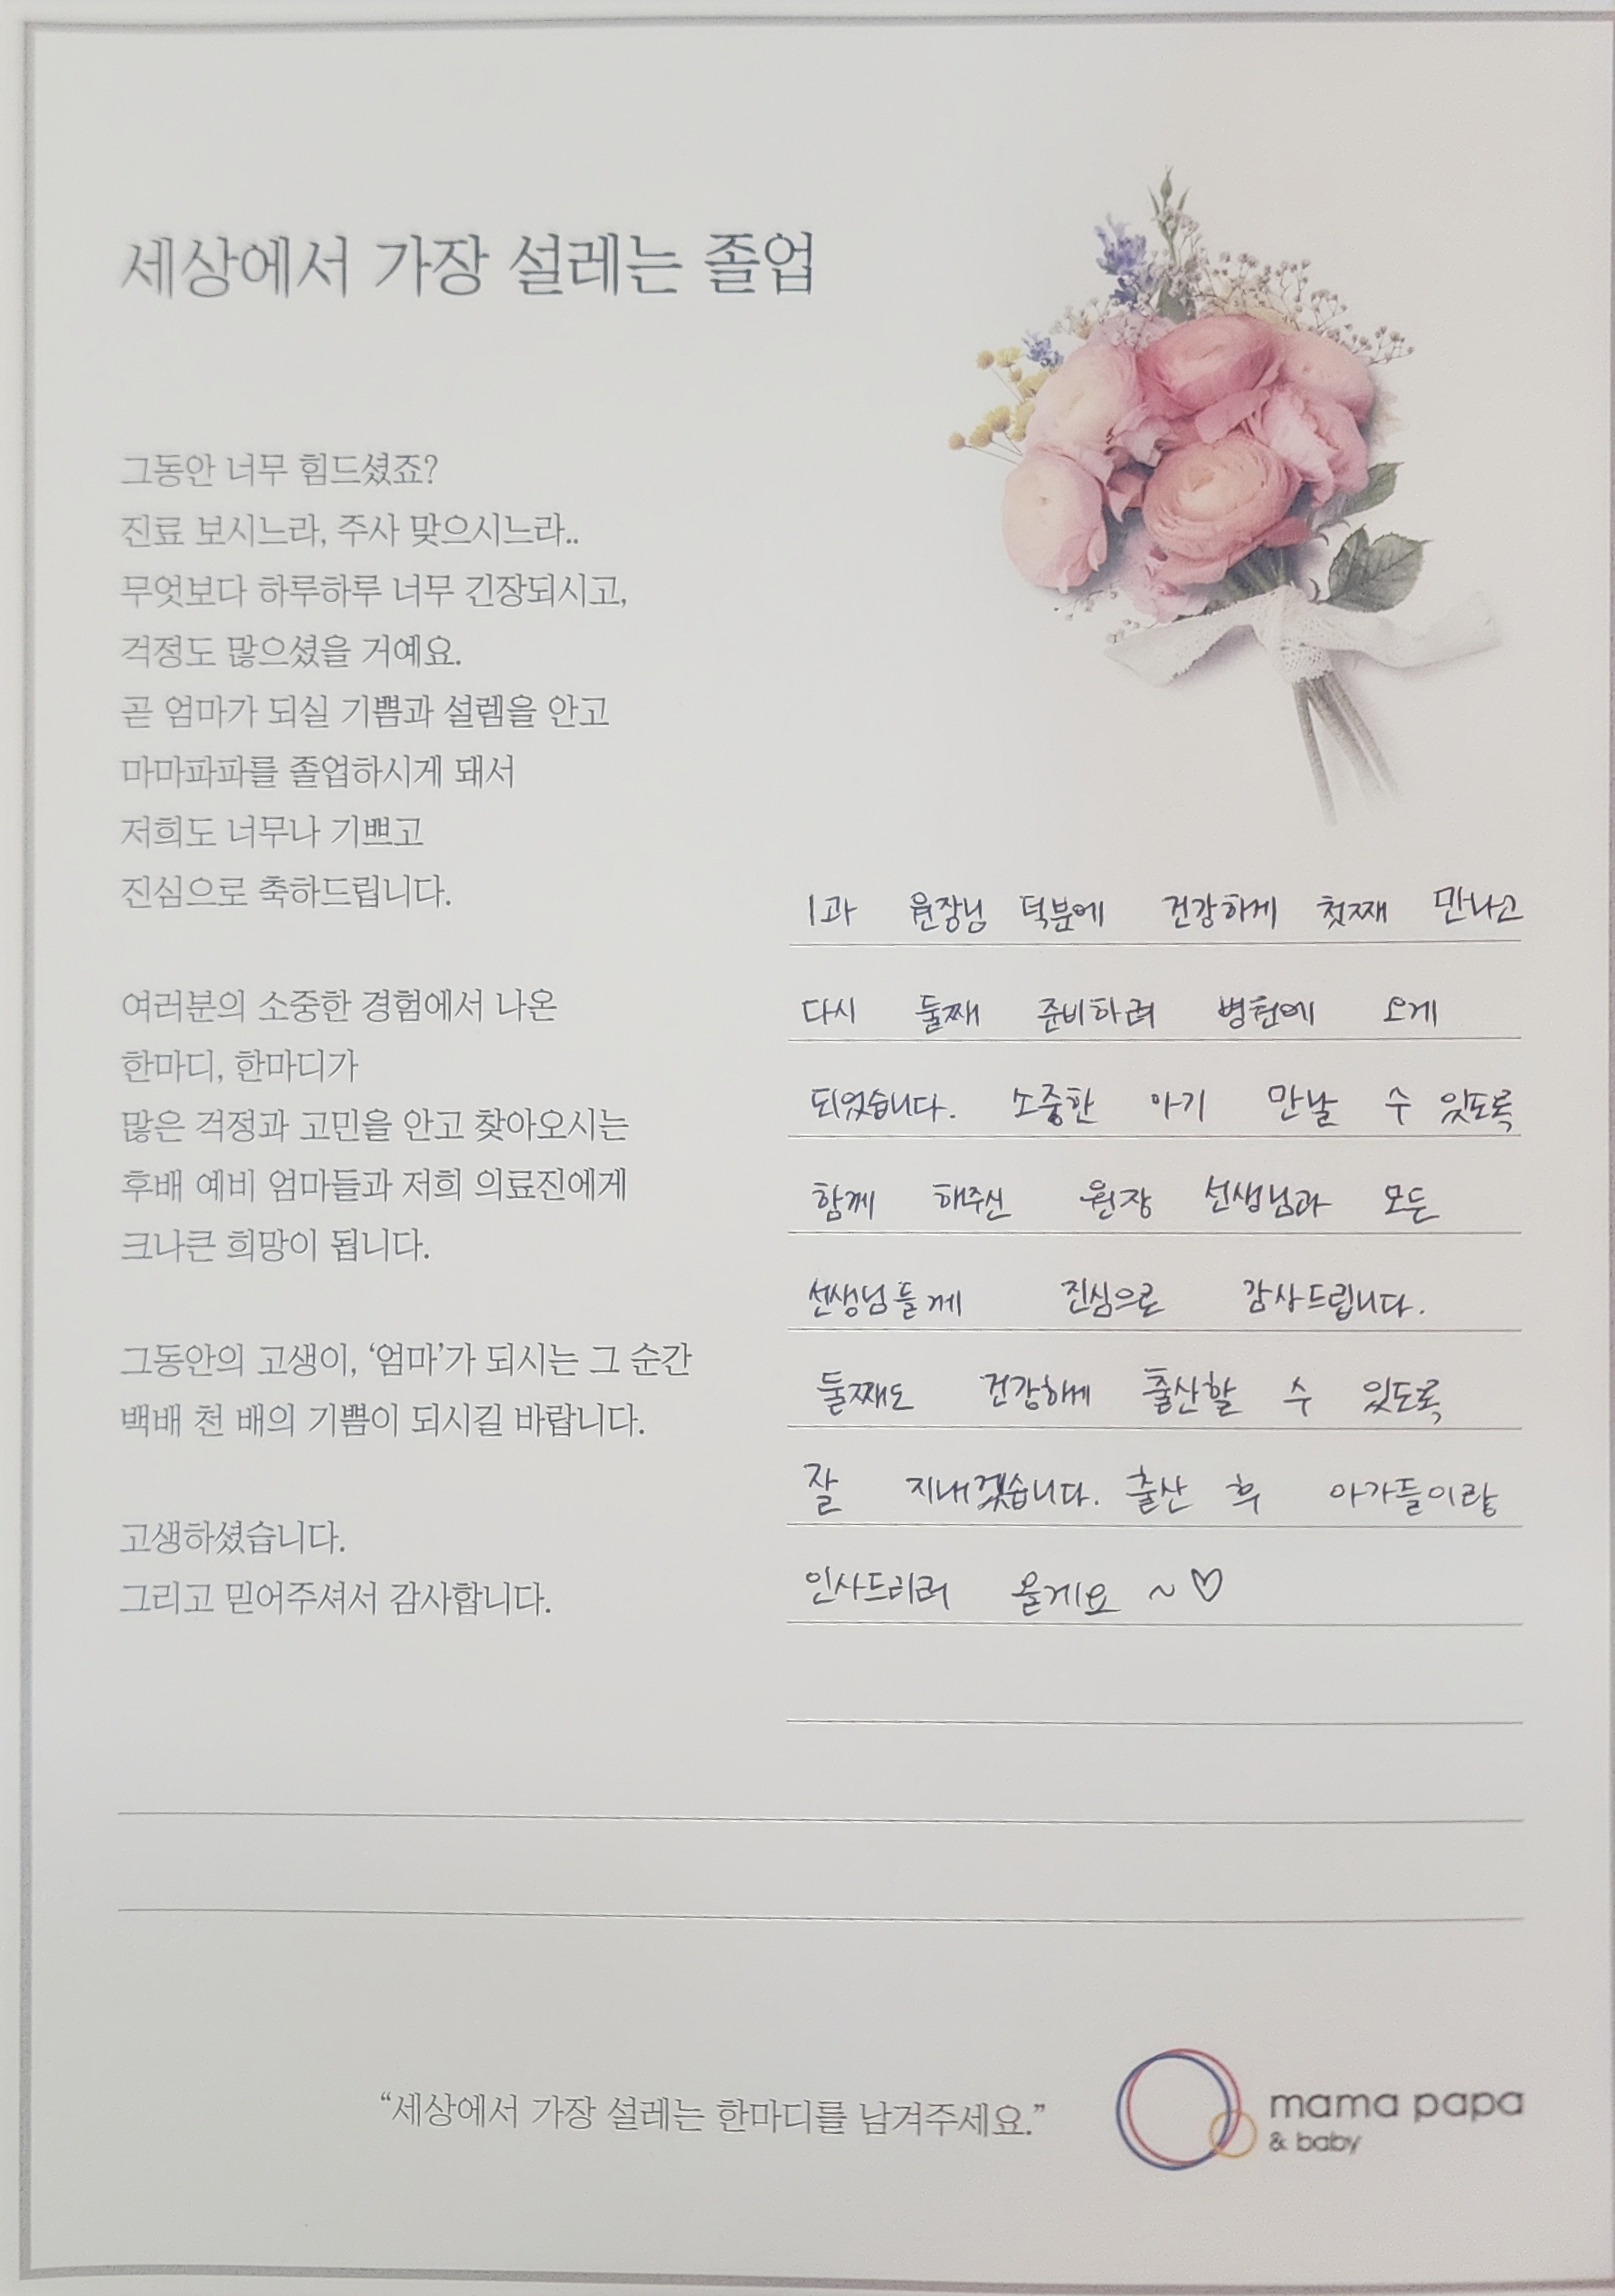 세상에서 가장 설레는 졸업
그동안 너무 힘드셨죠?
진료 보시느라, 주사 맞으시느라..
무엇보다 하루하루 너무 긴장되시고,
걱정도 많으셨을 거예요.
곧 엄마가 되실 기쁨과 설렘을 안고
마마파파를 졸업하시게 돼서
저희도 너무나 기쁘고
진심으로 축하드립니다.
여러분의 소중한 경험에서 나온
한마디, 한마디가
많은 걱정과 고민을 안고 찾아오시는
후배 예비 엄마들과 저희 의료진에게
크나큰 희망이 됩니다.
그동안의 고생이, ‘엄마’가 되시는 그 순간
백배 천 배의 기쁨이 되시길 바랍니다.
고생하셨습니다.
그리고 믿어주셔서 감사합니다.
1과 원장님 덕분에 건강하게 첫째 만나고
다시 둘째 준비하러 병원에 오게
되었습니다. 소중한 아기 만날 수 있도록
함께 해주신 원장 선생님과 모든
선생님들께 진심으로 감사드립니다.
둘째도 건강하게 출산할 수 있도록
잘 지내겠습니다. 출산 후 아가들이랑
인사드리러 올게요 ~♡
“세상에서 가장 설레는 한마디를 남겨주세요.”
mama papa
& baby